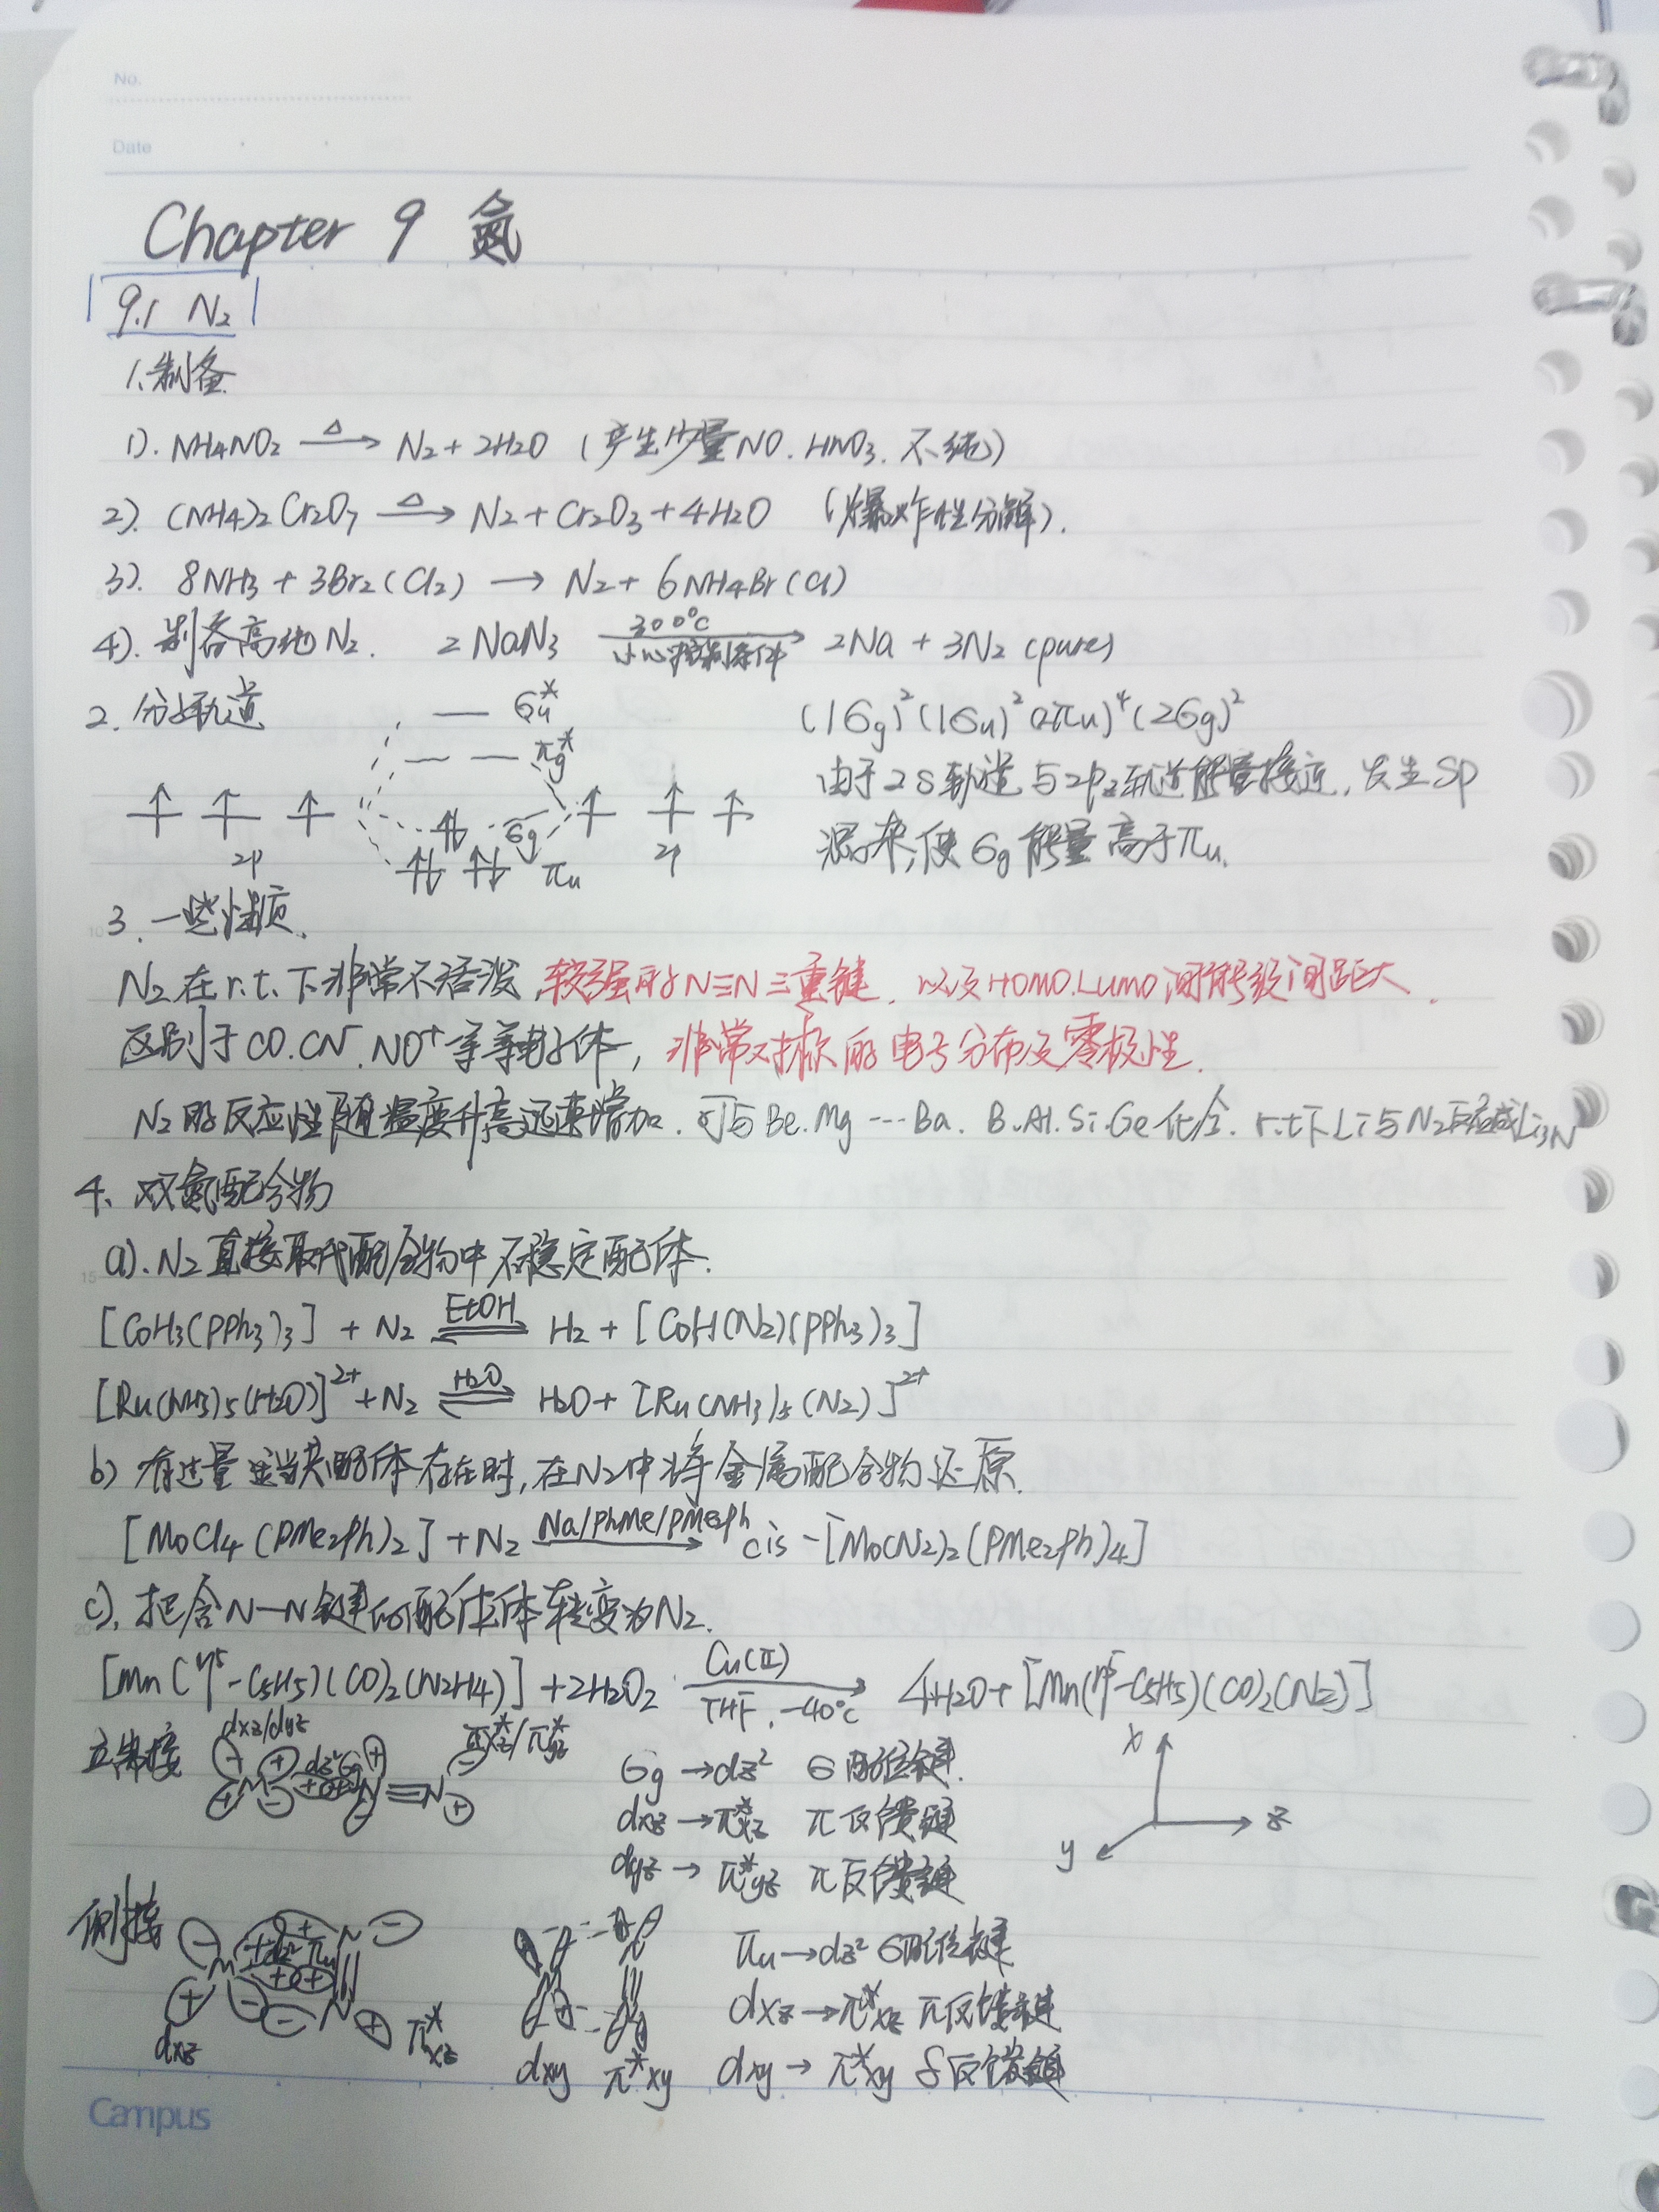 No.
Date
Chapter 9 氮
9.1 N₂
1.制备
1). NH4NO2 —Δ→ N2 + 2H2O (产生少量NO. HNO3. 不纯)
2). (NH4)2Cr2O7 —Δ→ N2 + Cr2O3 + 4H2O (爆炸性分解).
3). 8NH3 + 3Br2(Cl2) → N2 + 6NH4Br(Cl)
4). 制备高纯N2. 2NaN3 —300°C 小心控制条件→ 2Na + 3N2 (pure)
2. 分子轨道 σu* (1σg)²(1σu)²(1πu)⁴(2σg)²
πg* 由于2s轨道与2pz轨道能量接近, 发生sp
2p σg πu 2p 混杂, 使σg能量高于πu.
3. 一些性质.
N2在r.t.下非常不活泼, 较强的N≡N三重键. 以及HOMO.LUMO间能级间距大.
区别于CO.CN⁻.NO⁺等等电子体, 非常对称的电子分布及零极性.
N2的反应性随温度升高迅速增加. 可与Be.Mg---Ba. B.Al.Si.Ge化合. r.t下Li与N2反应成Li3N
4、双氮配合物
a). N2直接取代配合物中不稳定配体.
[CoH3(PPh3)3] + N2 ⇌EtOH H2 + [CoH(N2)(PPh3)3]
[Ru(NH3)5(H2O)]²⁺ + N2 ⇌H2O H2O + [Ru(NH3)5(N2)]²⁺
b) 有过量适当共配体存在时, 在N2中将金属配合物还原.
[MoCl4(PMe2Ph)2] + N2 —Na/PhMe/PMe2Ph→ cis-[Mo(N2)2(PMe2Ph)4]
c). 把含N—N键的配位体转变为N2.
[Mn(η⁵-C5H5)(CO)2(N2H4)] + 2H2O2 —Cu(II) THF, -40°C→ 4H2O + [Mn(η⁵-C5H5)(CO)2(N2)]
端接 dxz/dyz + - dz² σg M N≡N π*xz/π*yz σg → dz² σ配位键. x
dxz → π*xz π反馈键 z
dyz → π*yz π反馈键 y
侧接 - + dz² πu M N N πu → dz² σ配位键
dxz π*xz dxz → π*xz π反馈键
dxy π*xy dxy → π*xy δ反馈键
Campus